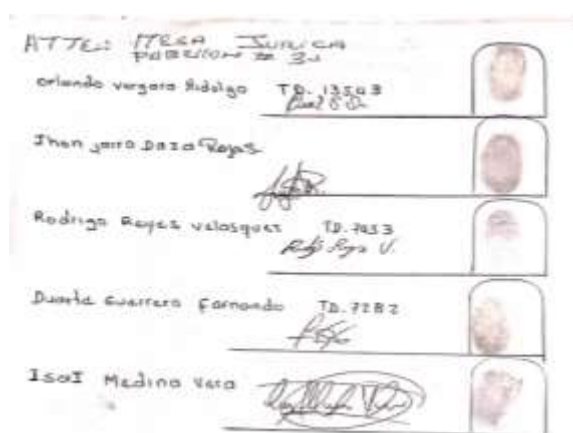 ATTE: MESA JURICA
PABELLON # 3
Orlando Vergara Hidalgo TD. 13503
Jhon jairo Daza Rojas
Rodrigo Reyes Velasquez TD. 7453
Duarte Guerrero Fernando TD. 7282
IsaI Medina Vera